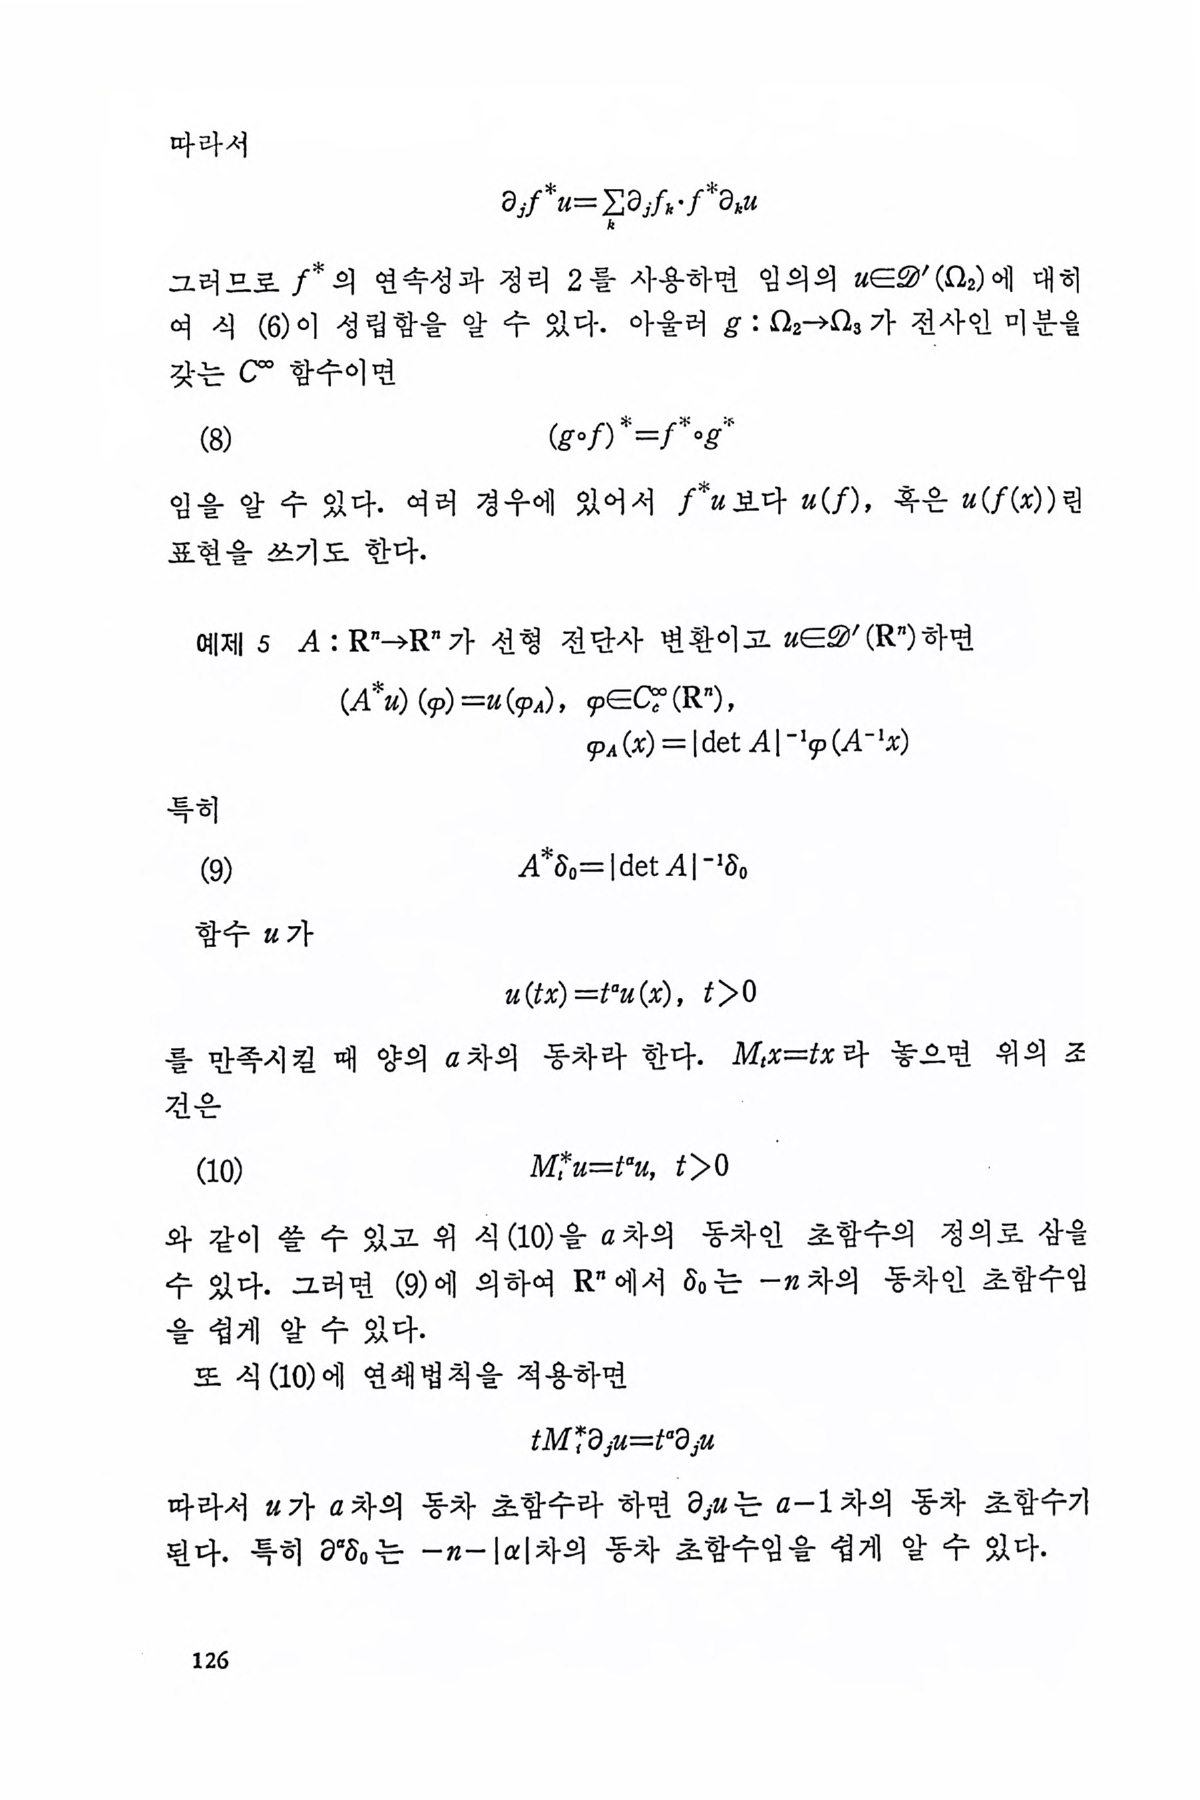 따라서
∂ⱼf*u=∑∂ⱼfₖ·f*∂ₖu
k
그러므로 f*의 연속성과 정리 2를 사용하면 임의의 u∈𝒟′(Ω₂)에 대히
여 식 (6)이 성립함을 알 수 있다. 아울러 g : Ω₂→Ω₃가 전사인 미분을
갖는 C^∞ 함수이면
(8) (g∘f)*=f*∘g*
임을 알 수 있다. 여러 경우에 있어서 f*u보다 u(f), 혹은 u(f(x))린
표현을 쓰기도 한다.
예제 5 A : Rⁿ→Rⁿ가 선형 전단사 변환이고 u∈𝒟′(Rⁿ)하면
(A*u)(φ)=u(φ_A), φ∈C_c^∞(Rⁿ),
φ_A(x)=|det A|⁻¹φ(A⁻¹x)
특히
(9) A*δ₀=|det A|⁻¹δ₀
함수 u가
u(tx)=tᵃu(x), t>0
를 만족시킬 때 양의 a차의 동차라 한다. Mₜx=tx라 놓으면 위의 조
건은
(10) Mₜ*u=tᵃu, t>0
와 같이 쓸 수 있고 위 식(10)을 a차의 동차인 초함수의 정의로 삼을
수 있다. 그러면 (9)에 의하여 Rⁿ에서 δ₀는 −n차의 동차인 초함수임
을 쉽게 알 수 있다.
또 식(10)에 연쇄법칙을 적용하면
tMₜ*∂ⱼu=tᵃ∂ⱼu
따라서 u가 a차의 동차 초함수라 하면 ∂ⱼu는 a−1차의 동차 초함수기
된다. 특히 ∂^αδ₀는 −n−|α|차의 동차 초함수임을 쉽게 알 수 있다.
126